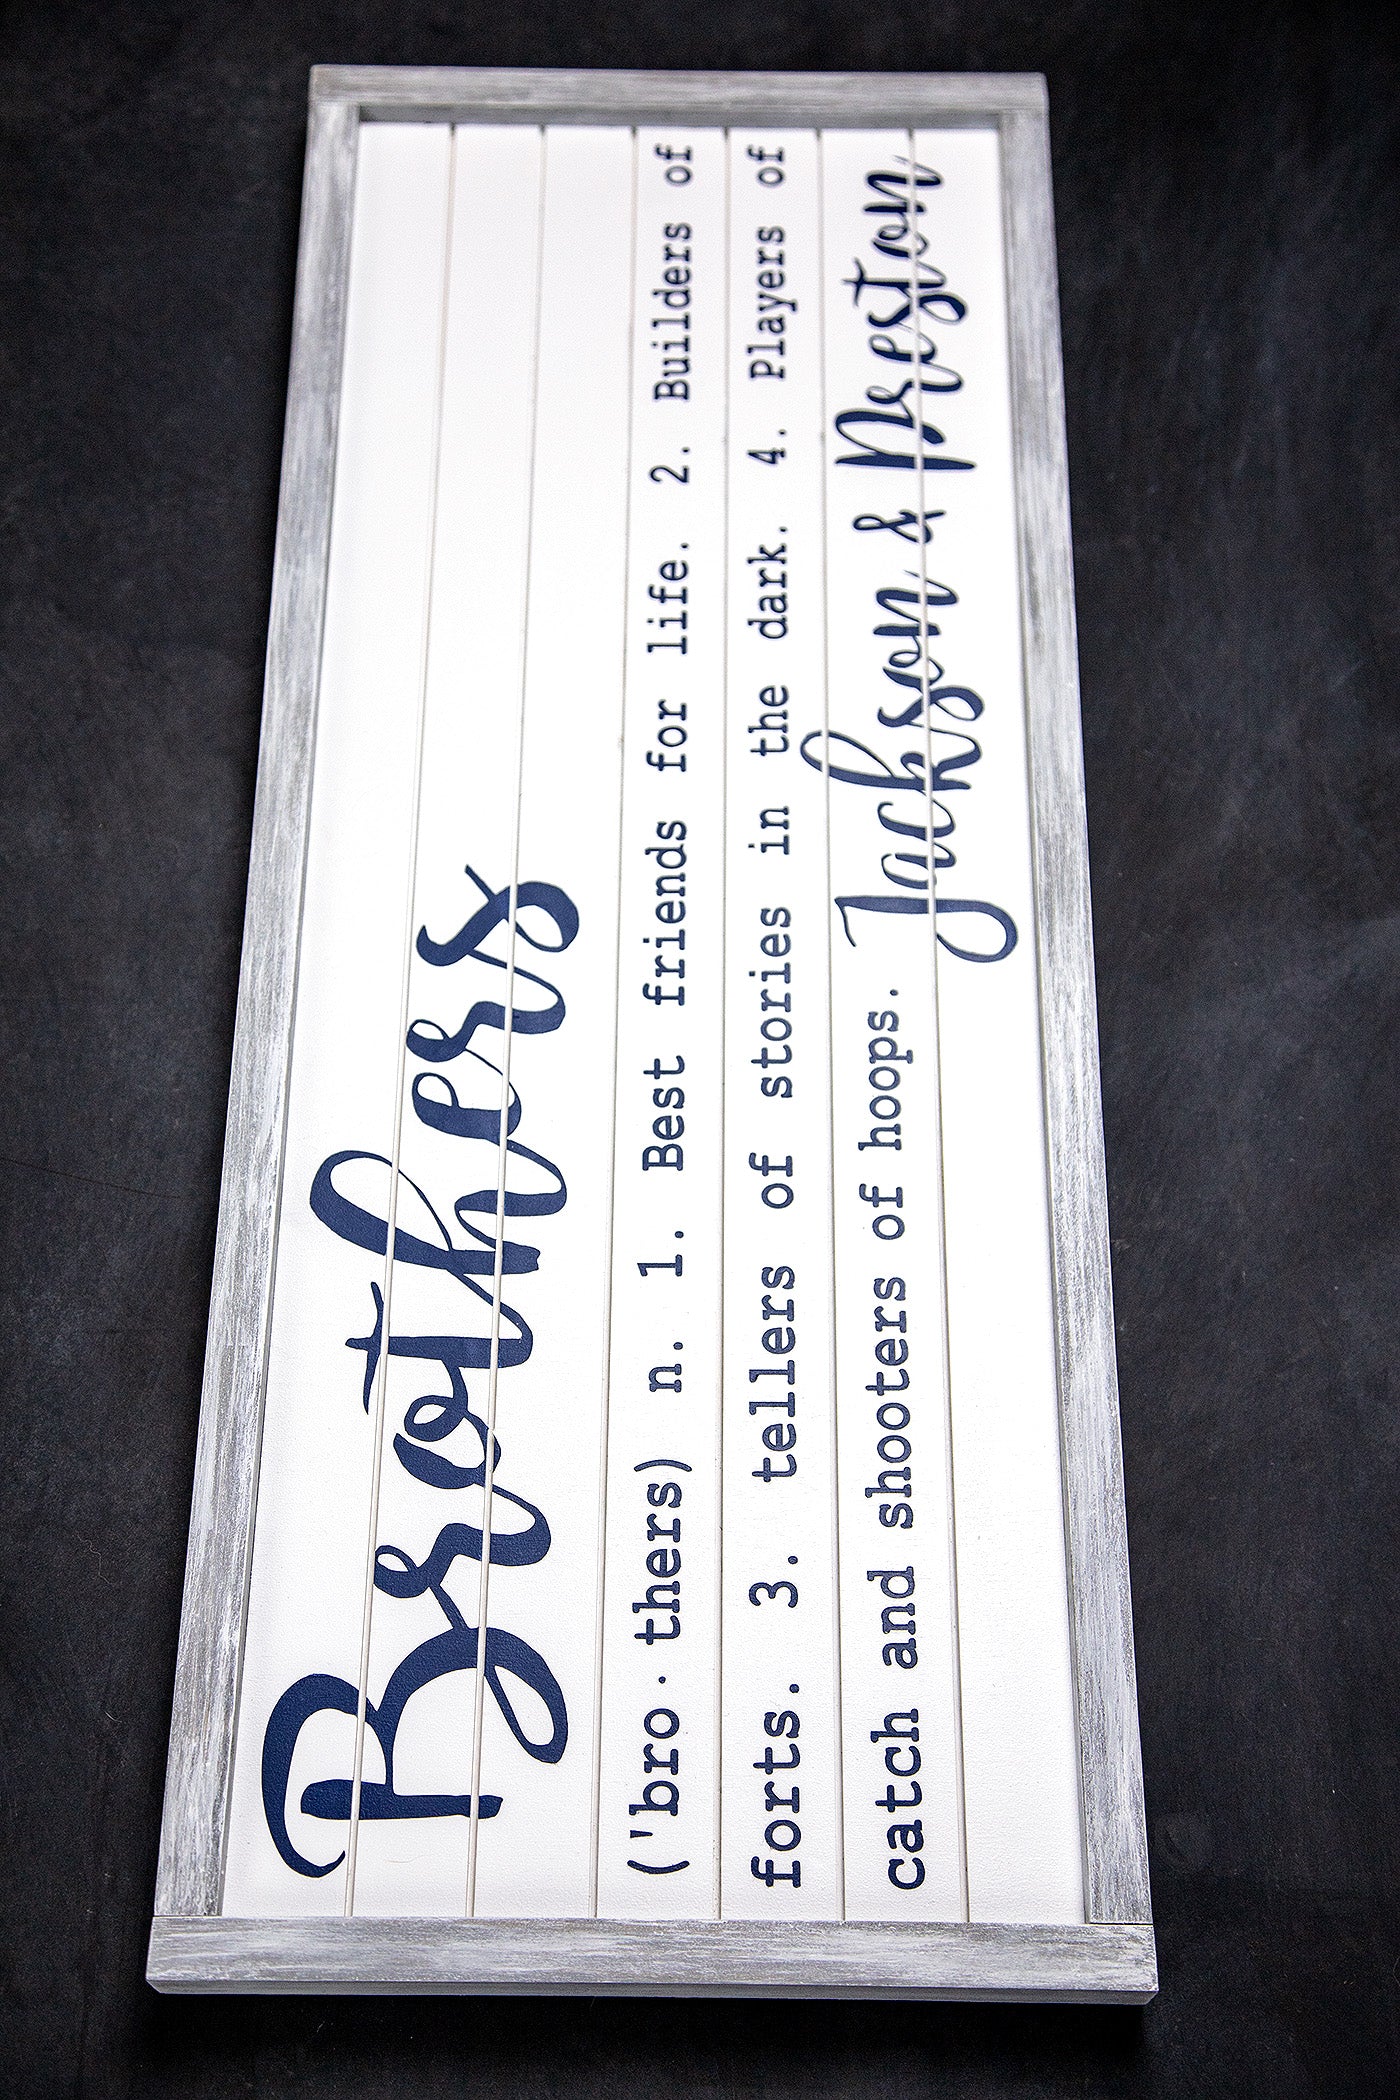 Brothers
('bro·thers) n. 1. Best friends for life. 2. Builders of
forts. 3. tellers of stories in the dark. 4. Players of
catch and shooters of hoops.
Jackson & Preston